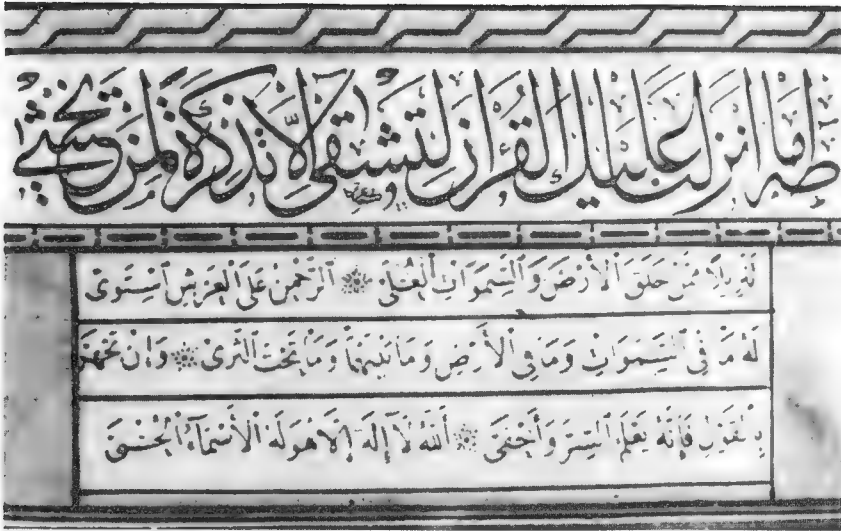 طه ما انزلنا عليك القرآن لتشقى إلا تذكرة لمن يخشى
تنزيلا ممن خلق الأرض والسموات العلى الرحمن على العرش استوى
له ما في السموات وما في الأرض وما بينهما وما تحت الثرى وان تجهر
بالقول فإنه يعلم السر وأخفى الله لا إله إلا هو له الأسماء الحسنى